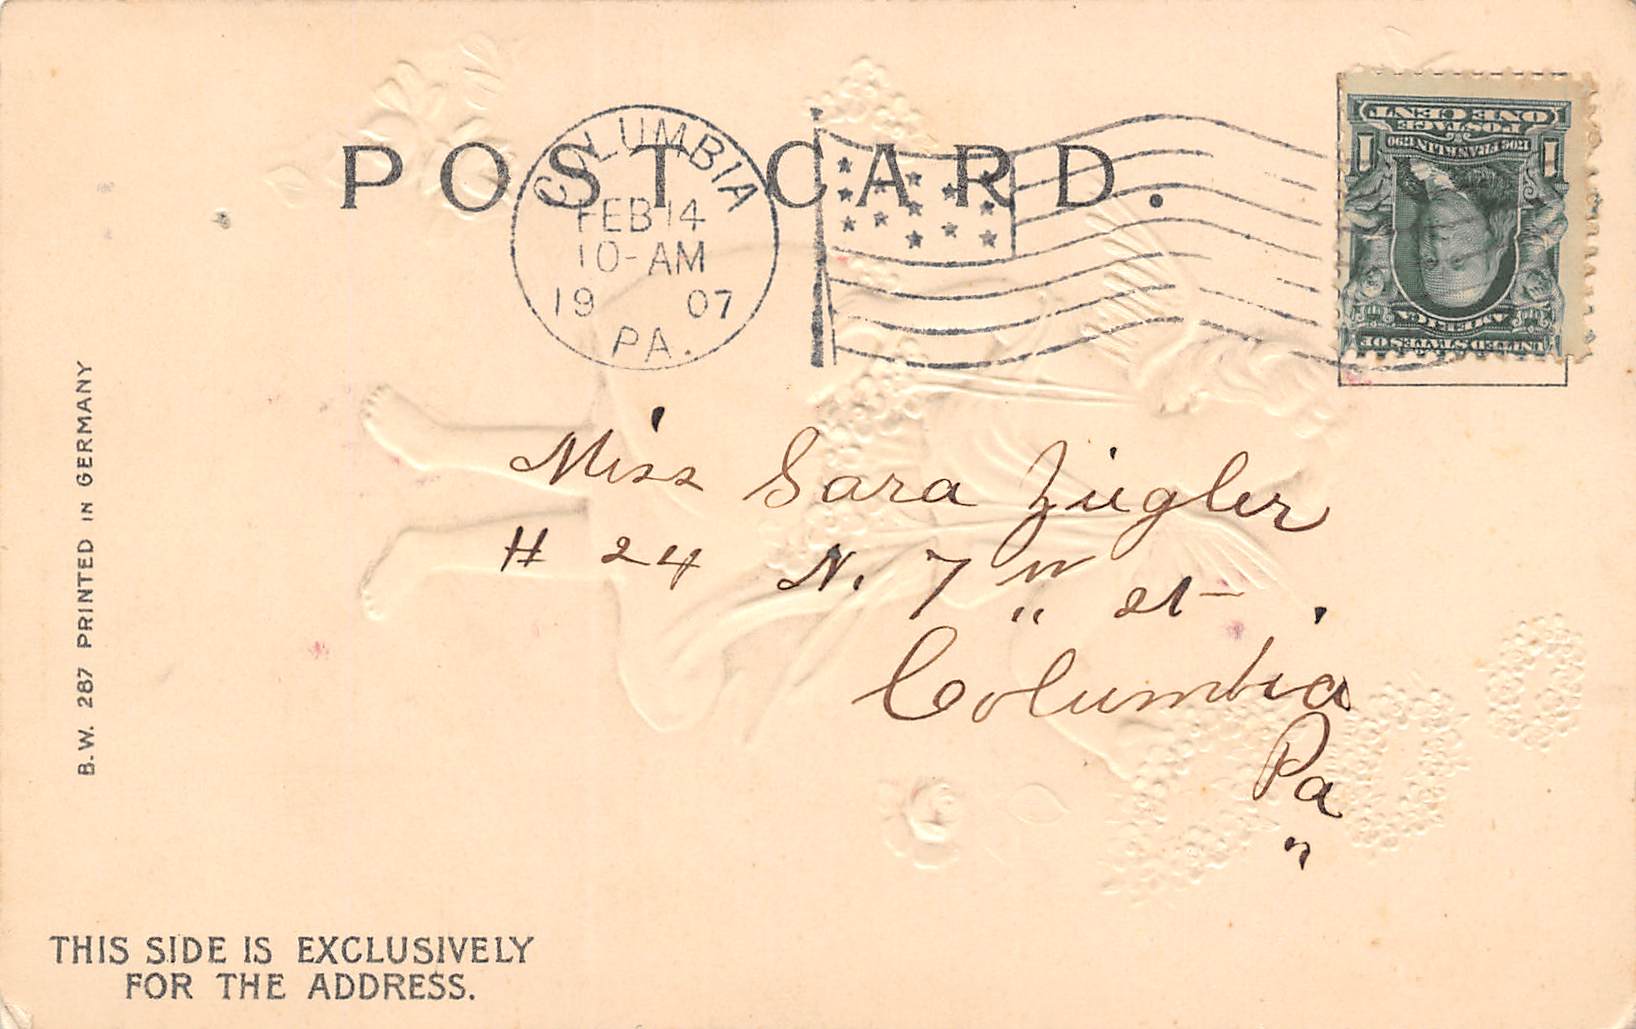 POST CARD.
COLUMBIA
FEB 14
10-AM
19 07
PA.
ONE CENT
POSTAGE
1706 FRANKLIN 1790
1 1
AMERICA
UNITED STATES OF
Miss Sara Ziegler
# 24 N. 7th st
Columbia
Pa
B.W. 287 PRINTED IN GERMANY
THIS SIDE IS EXCLUSIVELY
FOR THE ADDRESS.